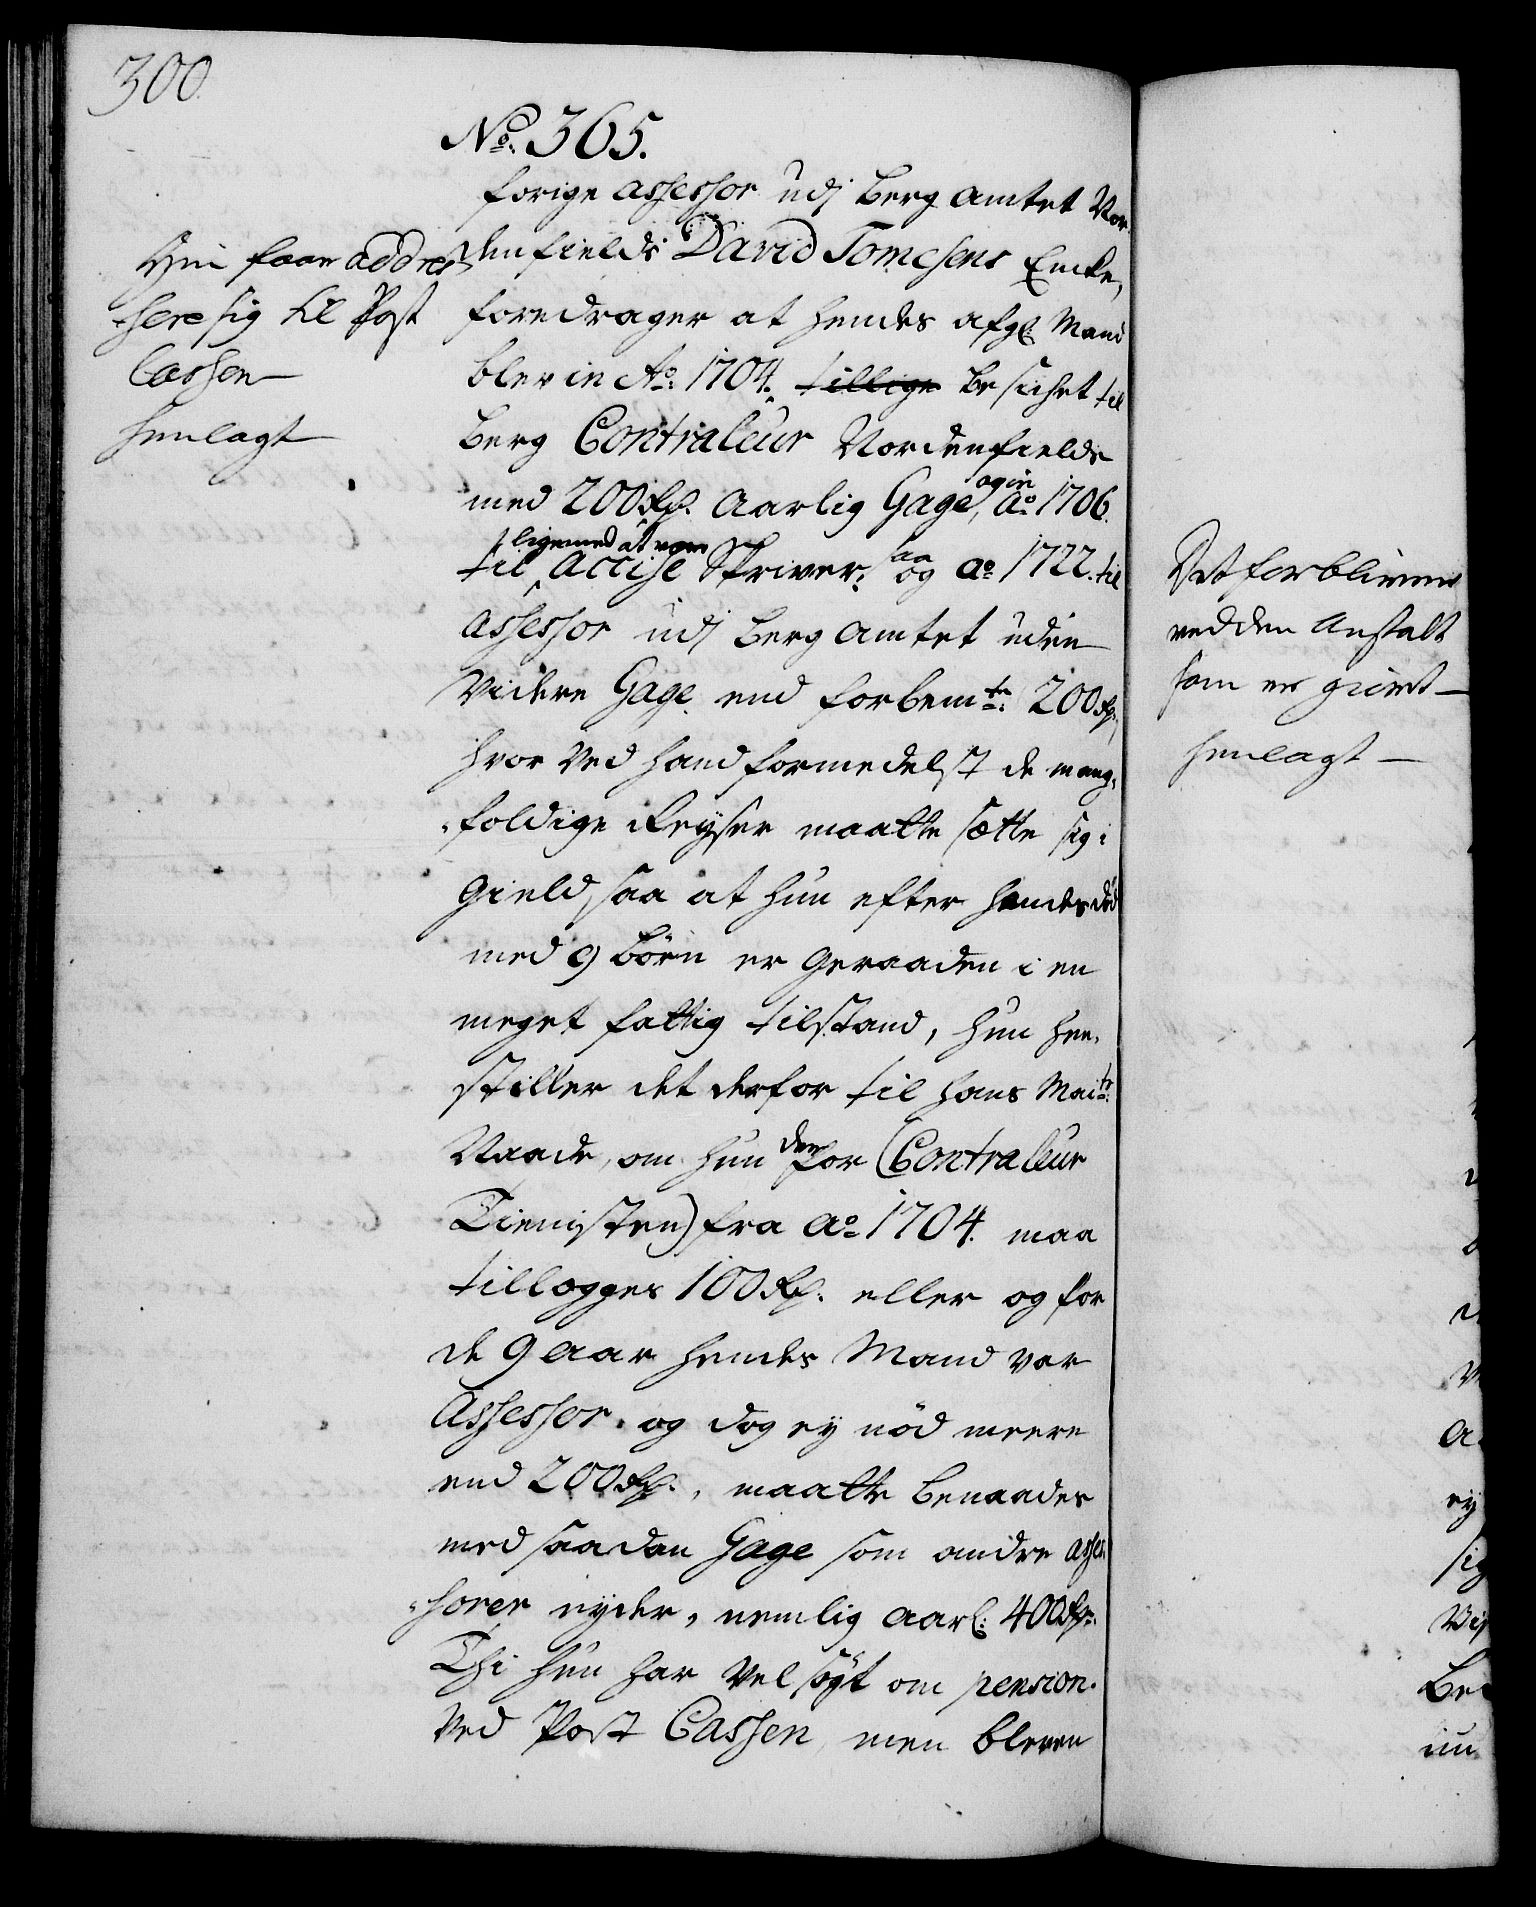 300.
No. 365.
forige Assessor udj Berg Amtet Nor-
denfields David Tomesens Encke,
foredrager at hendes afg. Mand
blev in Ao. 1704. tillige besichet til
Berg Contraleur Nordenfields
med 200 Rd. Aarlig Gage, og in Ao 1706.
til ligemed at være Accise Skriver, saa og Ao 1722. til
Assessor udj Berg Amtet uden
Videre Gage end forbemte. 200 Rd.
hvor ved hand formedelst de mang-
foldige Reyser maatte sætte sig i
Gield, saa at hun efter hendes død
med 9 børn er geraaden i en
meget fattig tilstand, hun hen-
stiller det derfor til Hans Maits.
Naade, om hun der for (Contraleur
Tienisten) fra Ao 1704. maa
tillegges 100 Rd. eller og for
de 9 aar hendes Mand var
Assessor, og dog ey nød meere
end 200 Rd., maatte benaades
med saadan Gage som andre Asses-
sorer nyder, nemlig aarl. 400 Rd.
Thi hun har vel søgt om pension
ved Post Cassen, men bleven
Hun faar addres-
sere sig til Post
Cassen
henlagt
Det forblivene
ved den Anstalt
som er giort
henlagt